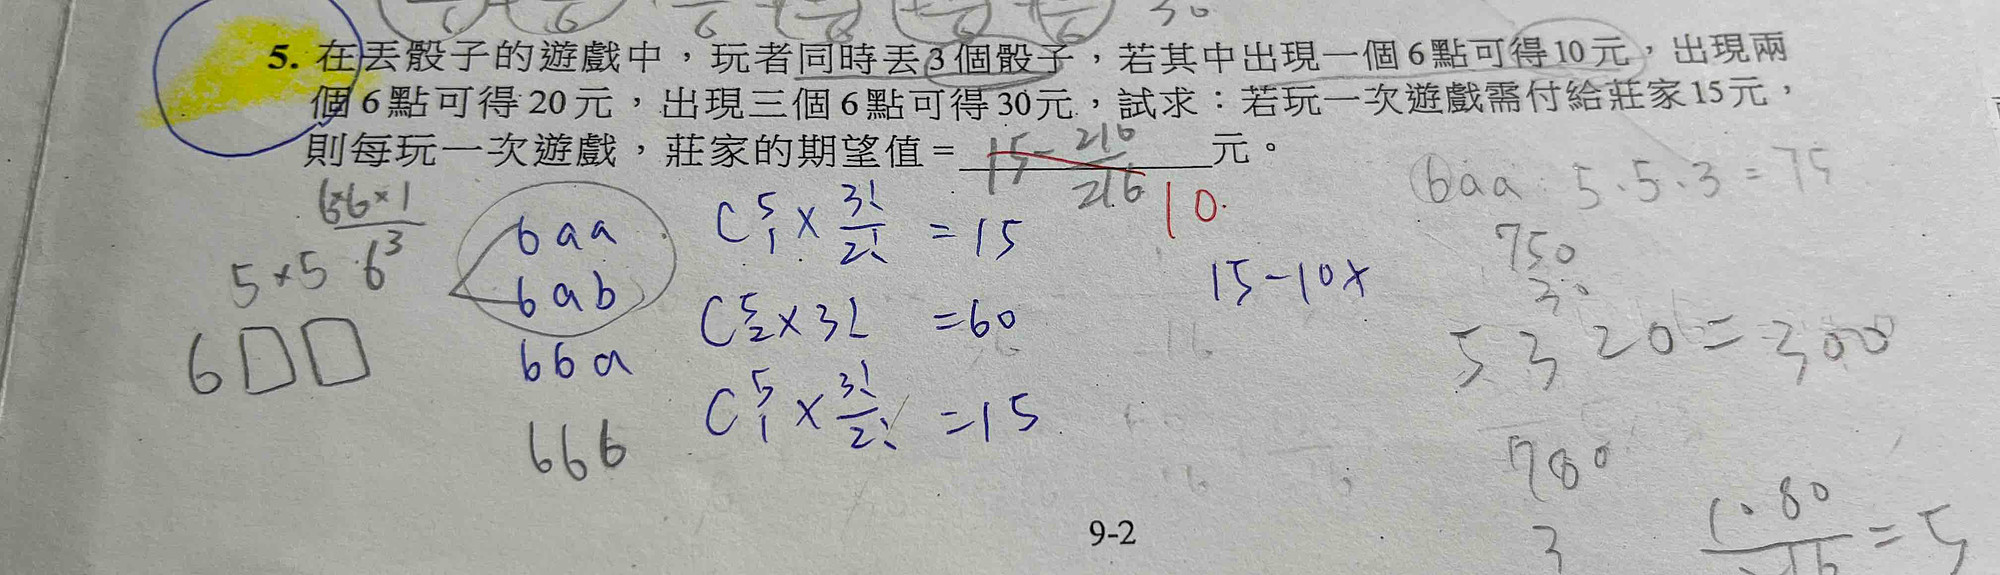 30
5. 在丟骰子的遊戲中，玩者同時丟3個骰子，若其中出現一個6點可得10元，出現兩
個6點可得20元，出現三個6點可得30元，試求：若玩一次遊戲需付給莊家15元，
則每玩一次遊戲，莊家的期望值=15-216/216元。
10.
6×6×1/6³
5×5
6□□
6aa C⁵₁×3!/2!=15
6ab C⁵₂×3!=60
66a C⁵₁×3!/2!=15
666
15-10×
6aa:5.5.3=75
750
30
5 3 20=300
780
3
1080/216=5
9-2